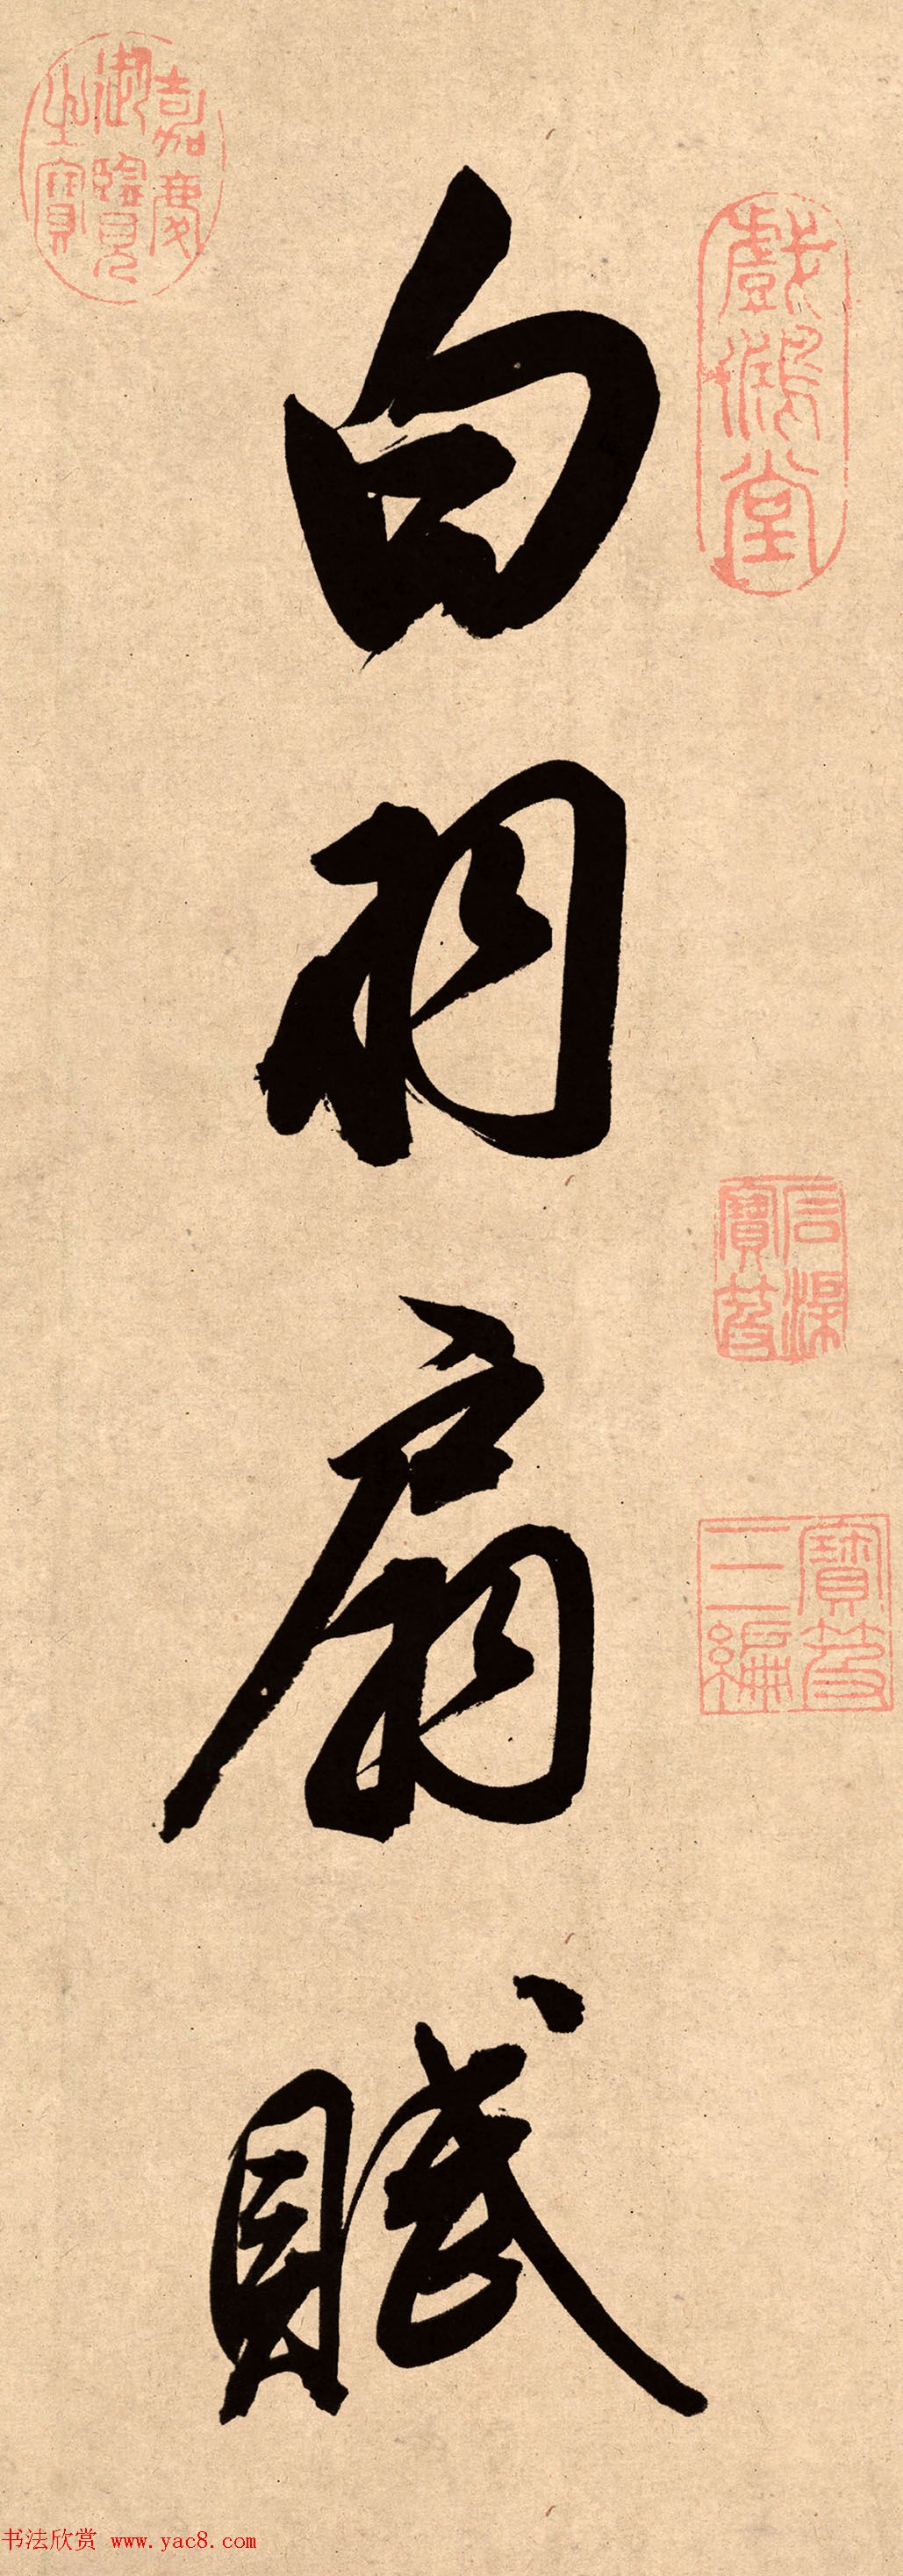 白羽扇賦
戲鴻堂
嘉慶
御覽
之寶
寶笈
三編
書法欣赏 www.yac8.com